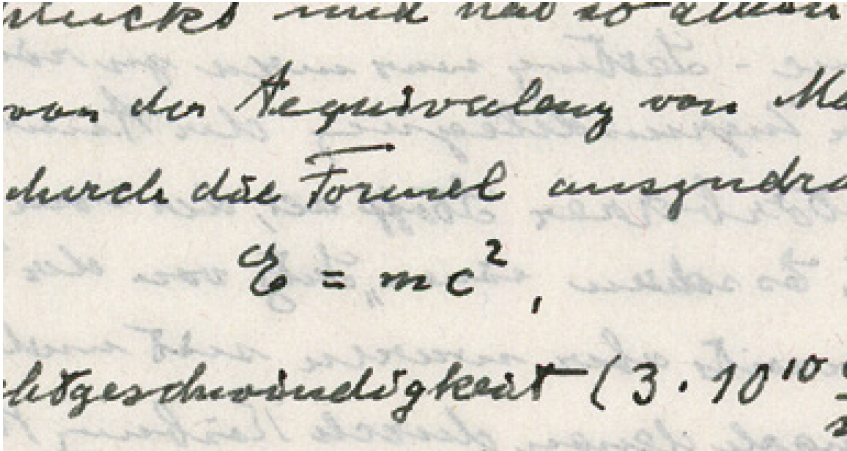 und hat so
von der Aequivalenz von Ma
durch die Formel auszudrü
E = mc²,
chtgeschwindigkeit (3 · 10¹⁰